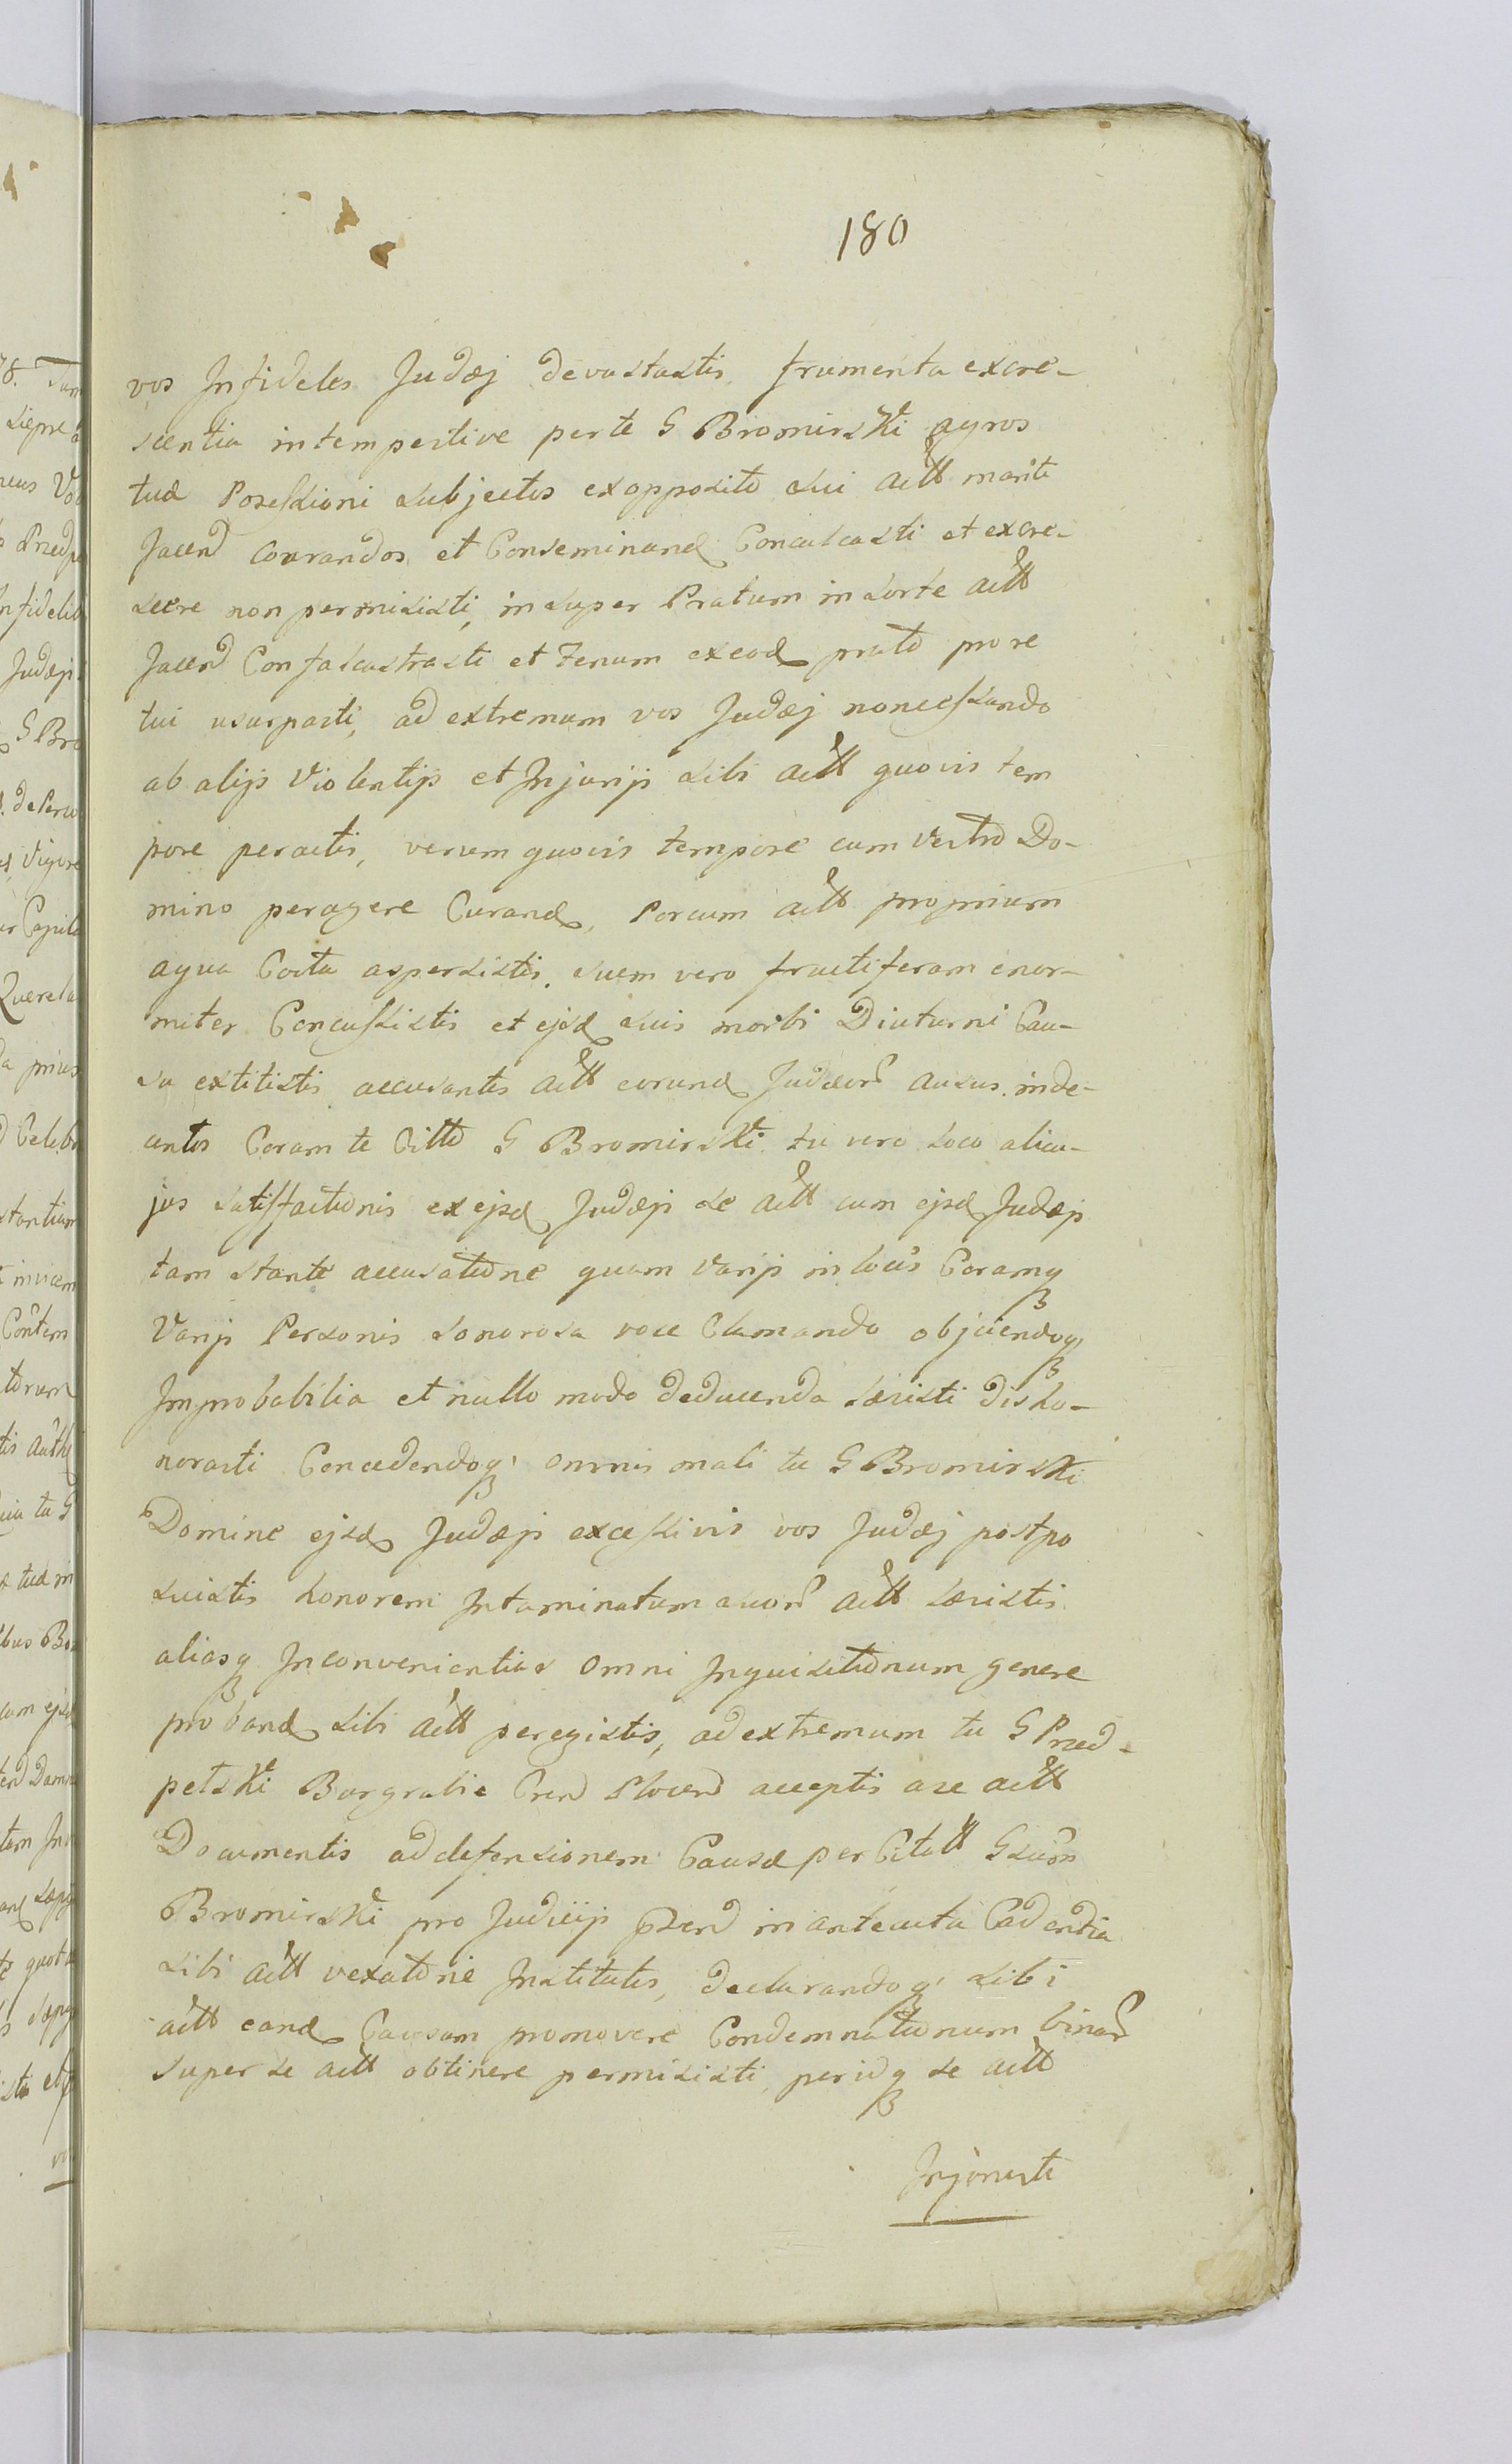 180
vos Infideles Judæj devastastis, frumenta excre-
scentia intempestive per te G Bromirski agros
tuæ Possessioni subjectos ex opposito sui actt mariti
Jacend Conrandos et Conseminand Conculcasti et excre-
scere non permisisti, insuper Pratum in sorte actt
Jacend Confalcastrasti et Fenum ex eod prato pro re
tui usurpasti, ad extremum vos Judæj non cessando
ab alijs Violentijs et Injurijs sibi actt quovis tem
pore peractis, verum quovis tempore cum Vestro Do-
mino peragere Curand, Porcum actt proprium
aqua Cocta aspersistis, suem vero fructiferam enor-
miter Concussistis et ejsd suis morbi Diuturni Cau-
sa extitistis accusantes actt eorund Judæor ausus inde-
centes Coram te Citto G Bromirski tu vero loco alicu-
jus satisfactionis ex ejsd Judæjs se actt cum ejsd Judæjs
tam stante accusatione quam Varijs in locis Coramq
Varijs Personis sonorosa voce Clamando objiciendoq
Improbabilia et nullo modo deducenda læsisti disho-
norasti Concedendoq omnis mali tu G Bromirski
Domine ejsd Judæjs excessivis vos Judæj postpo
suistis honorem Intaminatum suor actt læsistis
aliasq Inconvenientias omni Inquisitionum genere
proband sibi actt peregistis, ad extremum tu G Przed-
petski Burgrabie Cren Plocen acceptis a se actt
Documentis ad defensionem Causæ per Citatt Gsum
Bromirski pro Judicijs pzend in antecuta Cadentia
sibi actt vexatione Institutis, declarandoq sibi
actt eand Causam promovere Condemnationum binar
super se actt obtinere permisisti, per idq se actt
Injuriasti